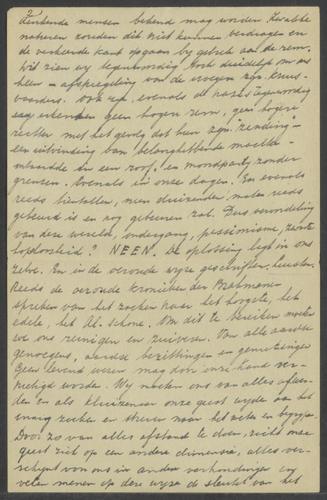 denkende mensen bekend mag worden. Zwakke
naturen zouden dit niet kunnen bedragen en
de verkeerde kant opgaan bij gebrek aan de rem.
Wij zien wij tegenwoordig toch duidelijk om ons
heen - afspiegeling van de vroegere zgn. kruis-
vaarders. Ook zij, evenals de nazi's tegenwoordig
erkenden geen hogere rem, geen hogere
rechter met het gevolg dat hun zgn. "zending" -
een uitvinding van belanghebbende machtheb-
ontaardde in een roof- en moordpartij zonder
grenzen. Evenals in onze dagen. En evenals
reeds tientallen, neen duizenden malen reeds
gebeurd is en nog gebeuren zal. Dus veroordeling
van deze wereld, ondergang, pessimisme, zwarte
hopeloosheid? NEEN. De oplossing ligt in ons
zelve. En in de oeroude wijze geschriften.
Reeds de oeroude kronieken der Brahmanen
spreken van het zoeken naar het hoogste, het
edele, het Al-Schone. Om dit te bereiken moeten
we ons reinigen en zuiveren. Van alle aardse
genoegens, aardse bezittingen en
Geen levend wezen mag door onze hand ver-
nietigd worden. Wij moeten ons van alles afwen-
den en als kluizenaar onze geest wijden aan het
eeuwig zoeken en streven naar het echte en
Door zo van alles afstand te doen, richt onze
geest zich op een andere dimensie, alles ver-
schijnt voor ons in andere verhoudingen
velen menen op deze wijze de sleutel van het